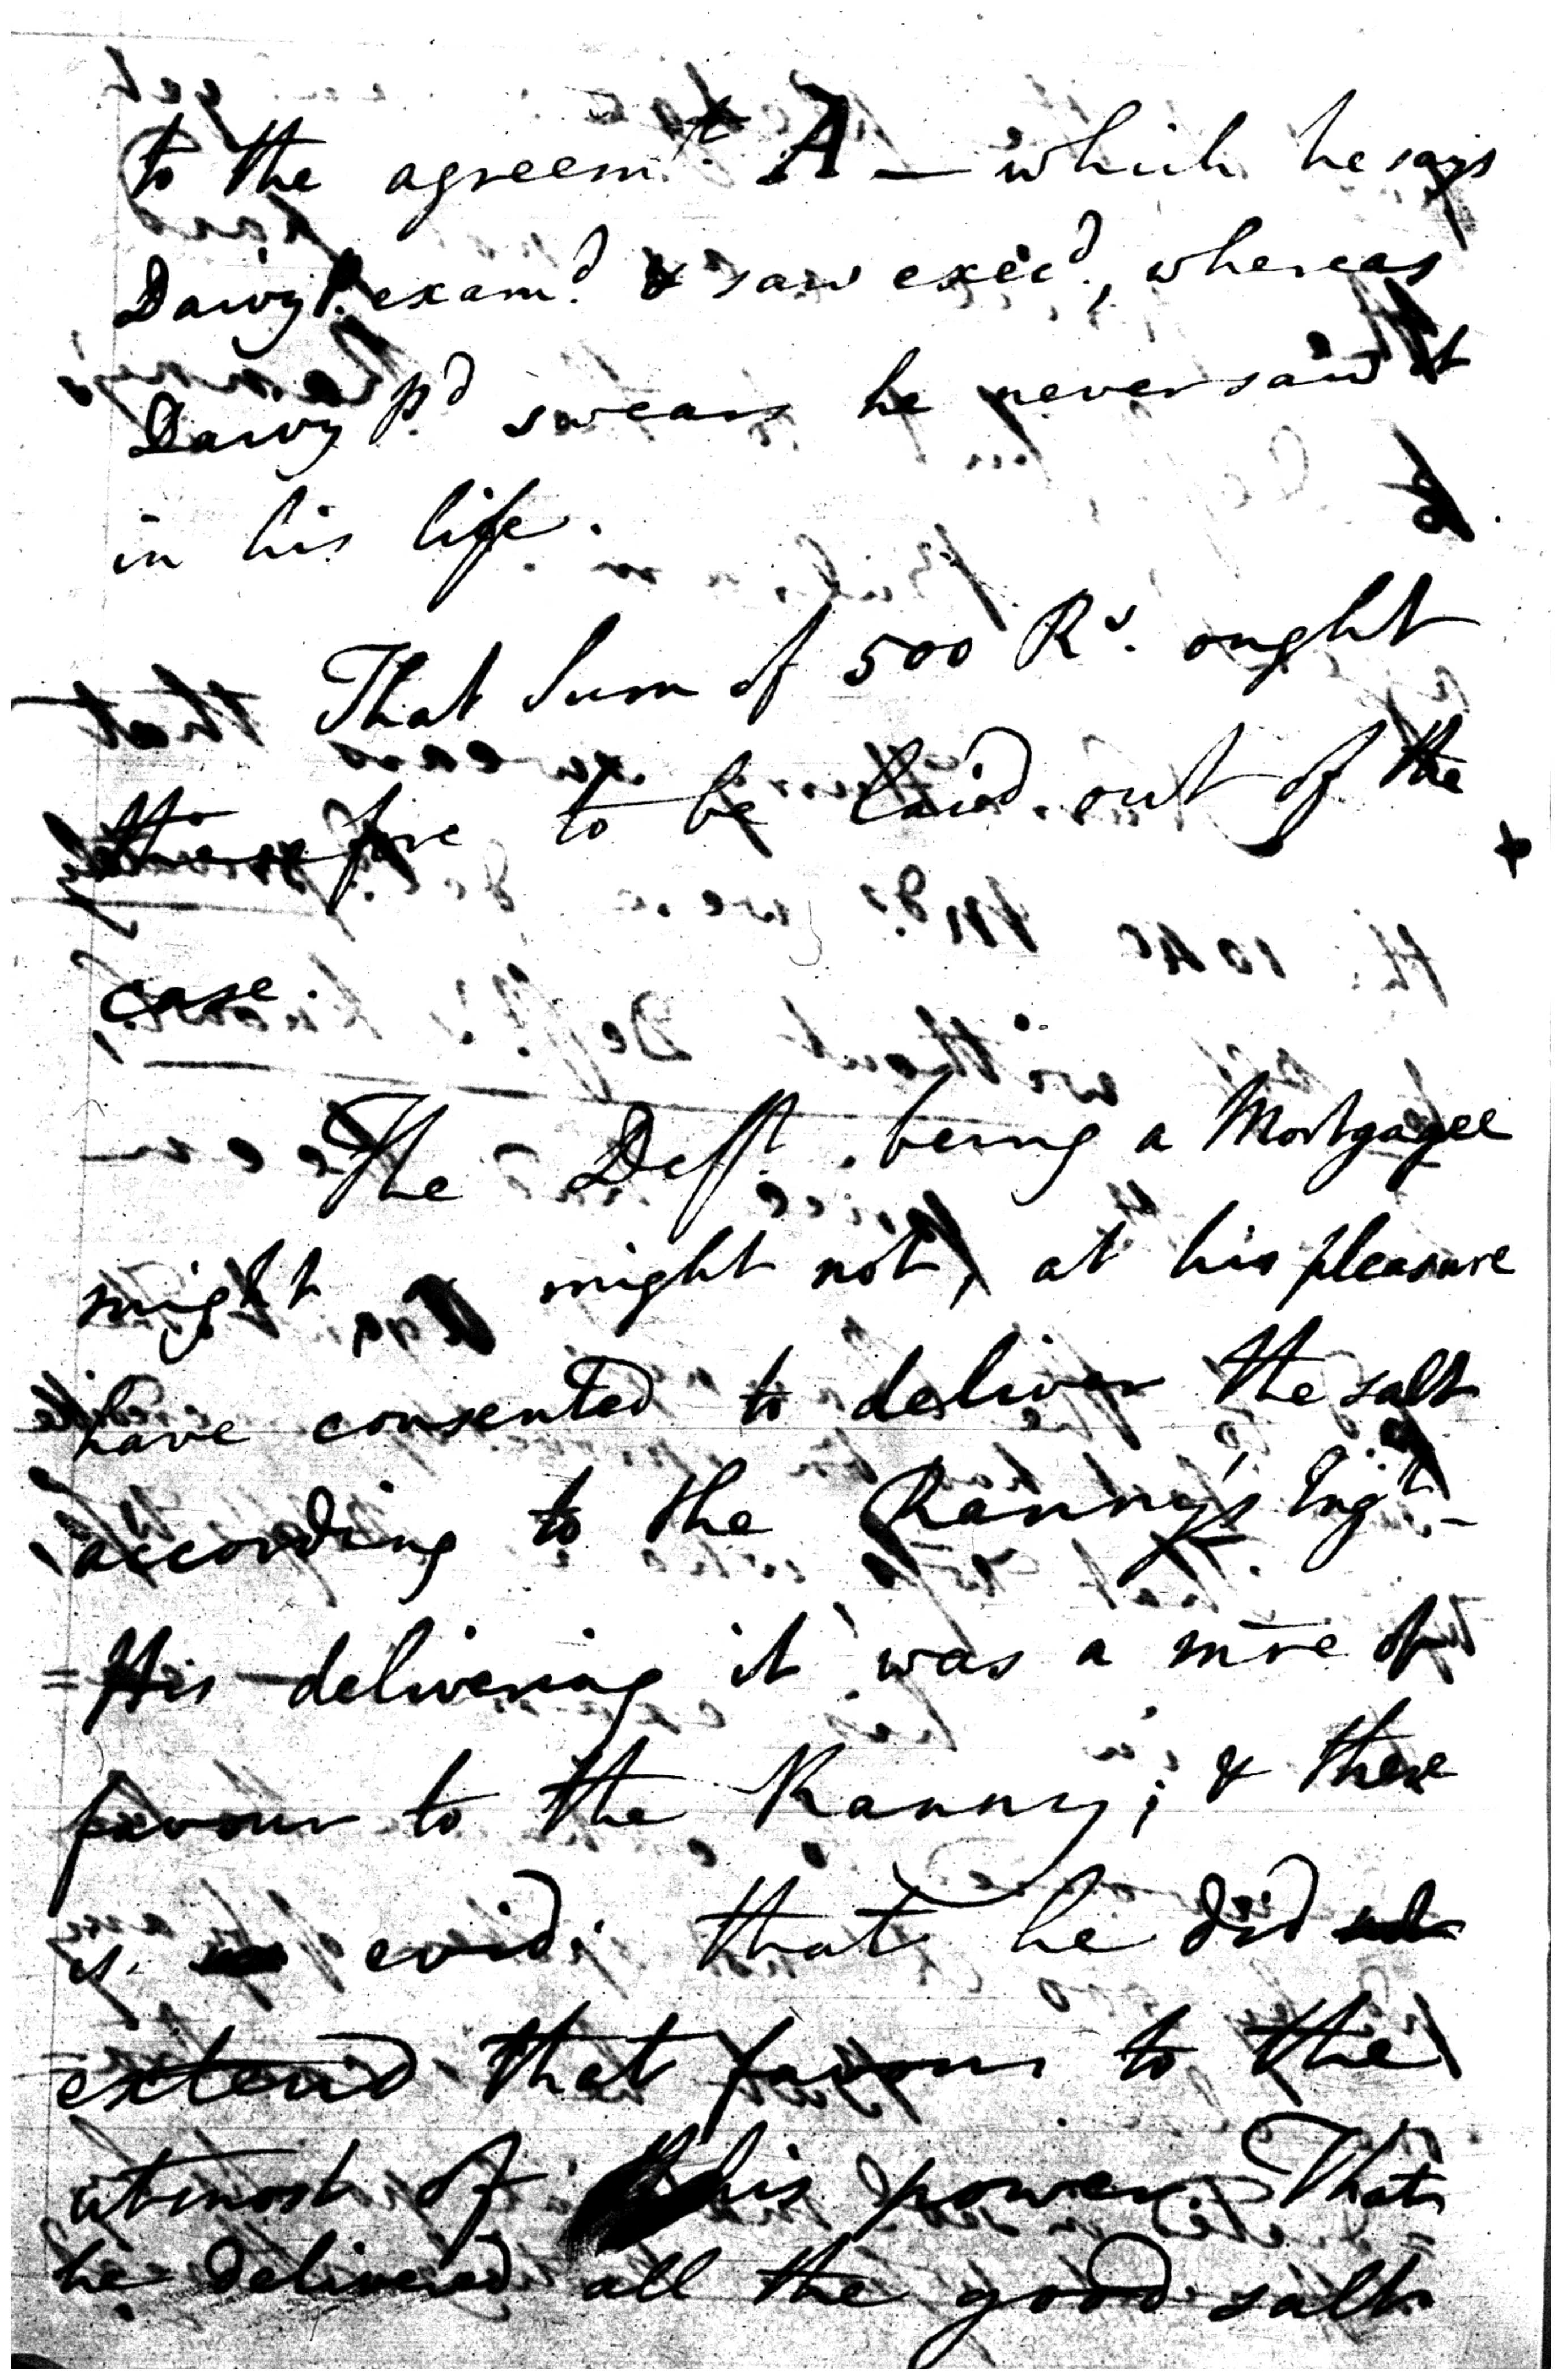 to the agreemt. A — which he says
Dawy P. examd. & saw execd., whereas
Dawy Pd. swears he never saw it
in his life.
That Sum of 500 Rs. ought
therefore to be laid out of the
case
The Deft. being a Mortgagee
might or might not, at his pleasure
have consented to deliver the salt
according to the Ranny's Engt. -
= His delivering it was a mre of
favour to the Ranny; & there
is evid: that he did
extend that favour to the
utmost of his power. That
he delivered all the good salt